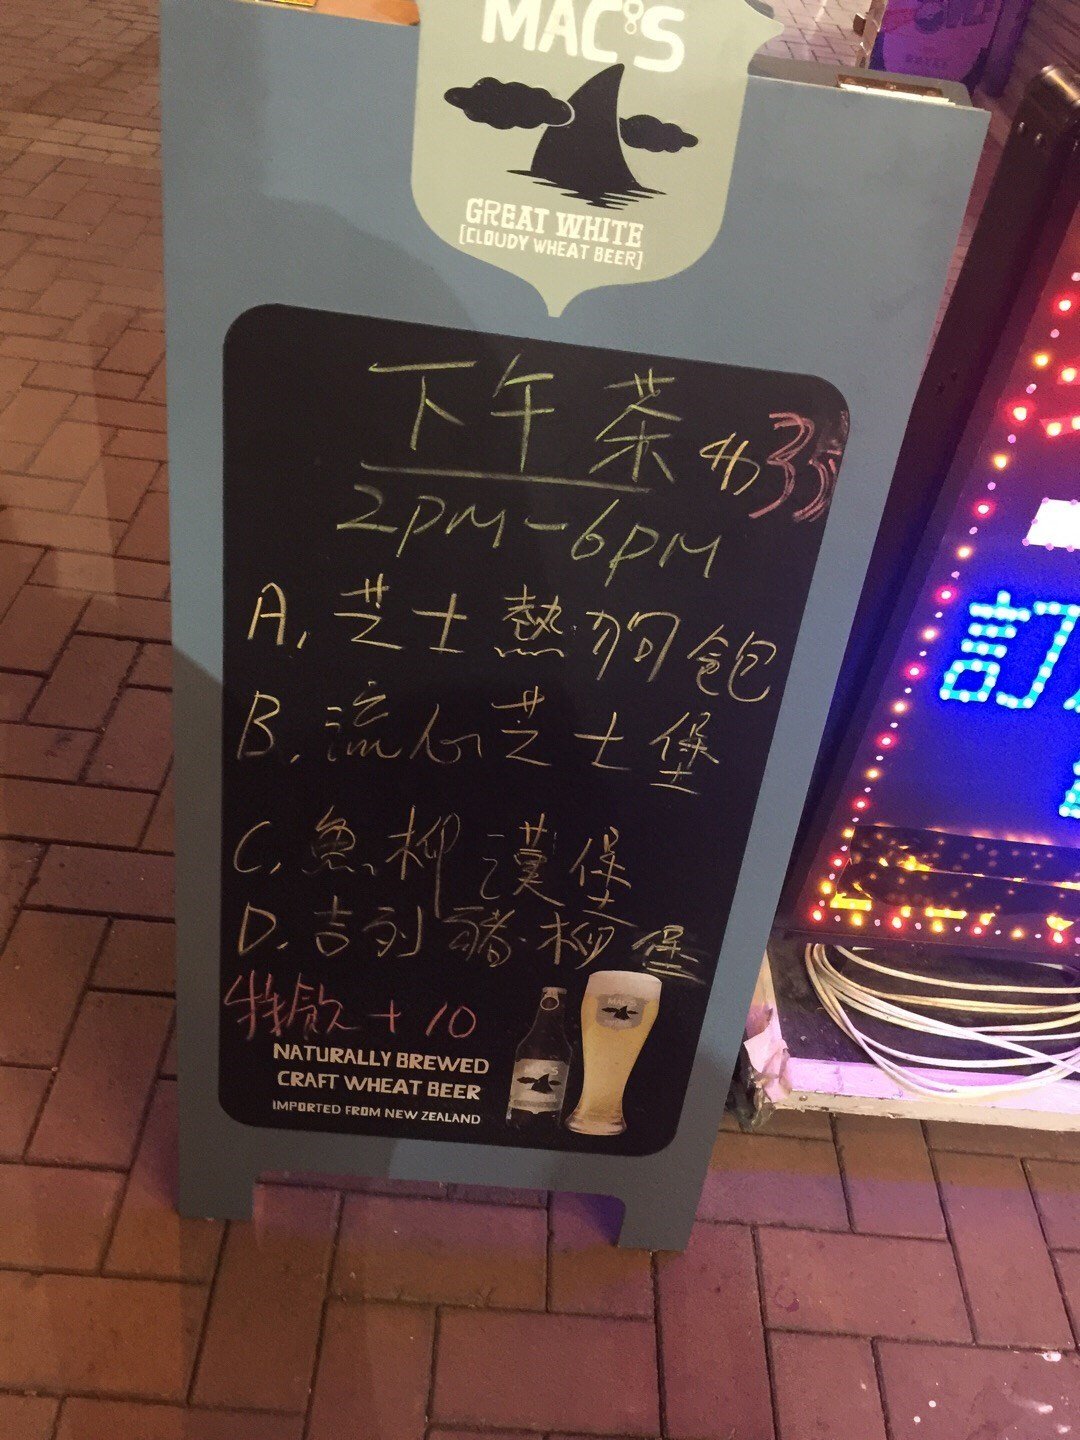 MAC'S
GREAT WHITE
[CLOUDY WHEAT BEER]
下午茶 $35
2PM-6PM
A. 芝士熱狗飽
B. 流心芝士堡
C. 魚柳漢堡
D. 吉列豬柳堡
特飲 + 10
NATURALLY BREWED
CRAFT WHEAT BEER
IMPORTED FROM NEW ZEALAND
MAC'S
訂